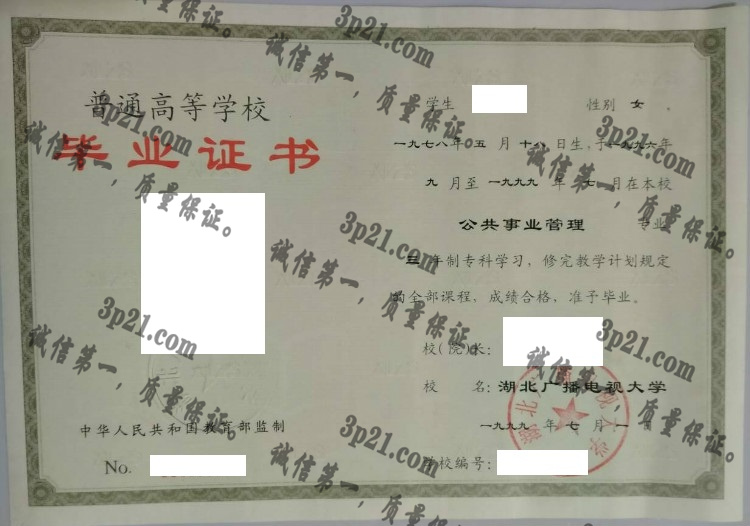 普通高等学校
毕业证书
中华人民共和国教育部监制
No.
学生 性别 女 、
一九七八年五月十八日生，于一九九六年
九月至一九九九年七月在本校
公共事业管理 专业
三年制专科学习，修完教学计划规定
的全部课程，成绩合格，准予毕业。
校(院)长：
校名：湖北广播电视大学
一九九九年七月一日
学校编号：
3p21.com
诚信第一，质量保证。
3p21.com
诚信第一，质量保证。
3p21.com
诚信第一，质量保证。
3p21.com
诚信第一，质量保证。
3p21.com
诚信第一，质量保证。
3p21.com
诚信第一，质量保证。
3p21.com
诚信第一，质量保证。